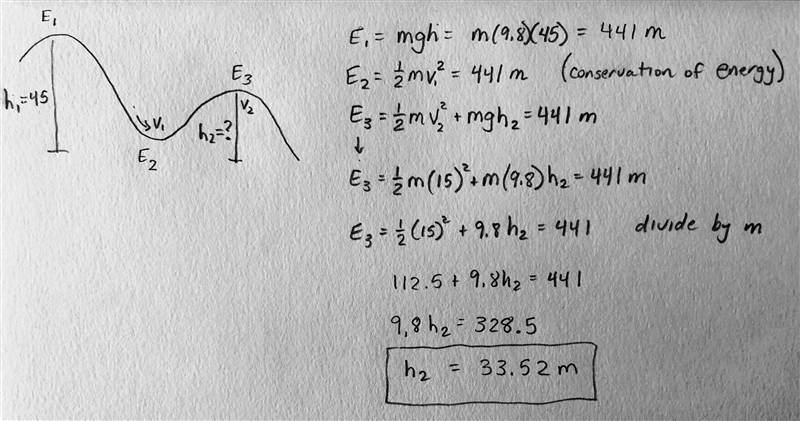 E₁
h₁=45
v₁
E₂
E₃
v₂
h₂=?
E₁ = mgh = m(9.8)(45) = 441 m
E₂ = ½mv₁² = 441 m (conservation of energy)
E₃ = ½mv₂² + mgh₂ = 441 m
↓
E₃ = ½m(15)² + m(9.8)h₂ = 441 m
E₃ = ½(15)² + 9.8h₂ = 441 divide by m
112.5 + 9.8h₂ = 441
9.8h₂ = 328.5
h₂ = 33.52 m